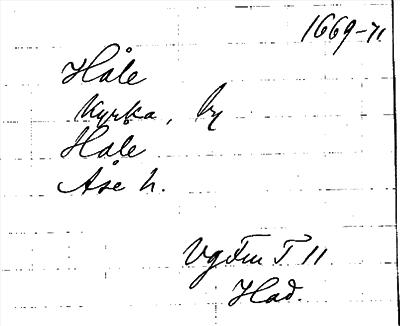 1669-71.
Håle
Kyrka, by
Hale
Åse h.
Vg Fm T 11
Had.